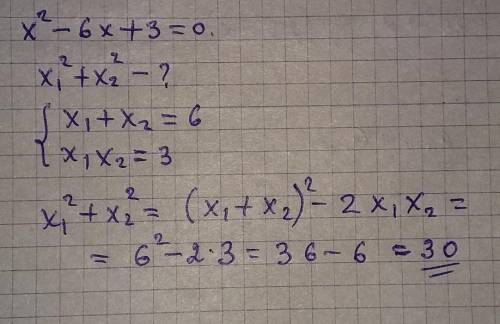 x² - 6x + 3 = 0.
x₁² + x₂² - ?
{ x₁ + x₂ = 6
x₁ x₂ = 3
x₁² + x₂² = (x₁ + x₂)² - 2 x₁ x₂ =
= 6² - 2·3 = 36 - 6 = 30